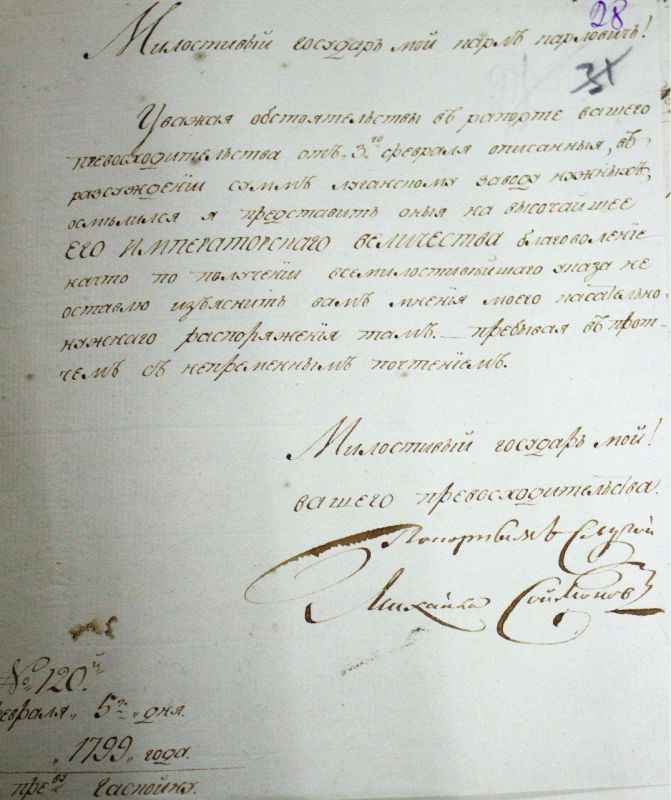 28
31
Милостивый государь мой карлъ карловичъ!
Уважая обстоятельствы въ рапорте вашего
превосходительства отъ 3го февраля описанныя, въ
разсуждении суммъ луганскому заводу нужныхъ,
осмѣлился я представить оныя на высочайшее
ЕГО ИМПЕРАТОРСКАГО величества благоволение
начто по получении всемилостивѣйшаго указа не
оставлю изъяснить вамъ мнения моего касательно
нужнаго распоряжения тамъ. пребывая въ прот
чемъ съ непременнымъ почтениемъ.
Милостивый государь мой!
вашего превосходительства.
покорнымъ слугой
Михайла Соймонов
№ 120й
февраля 5го дня.
1799 года.